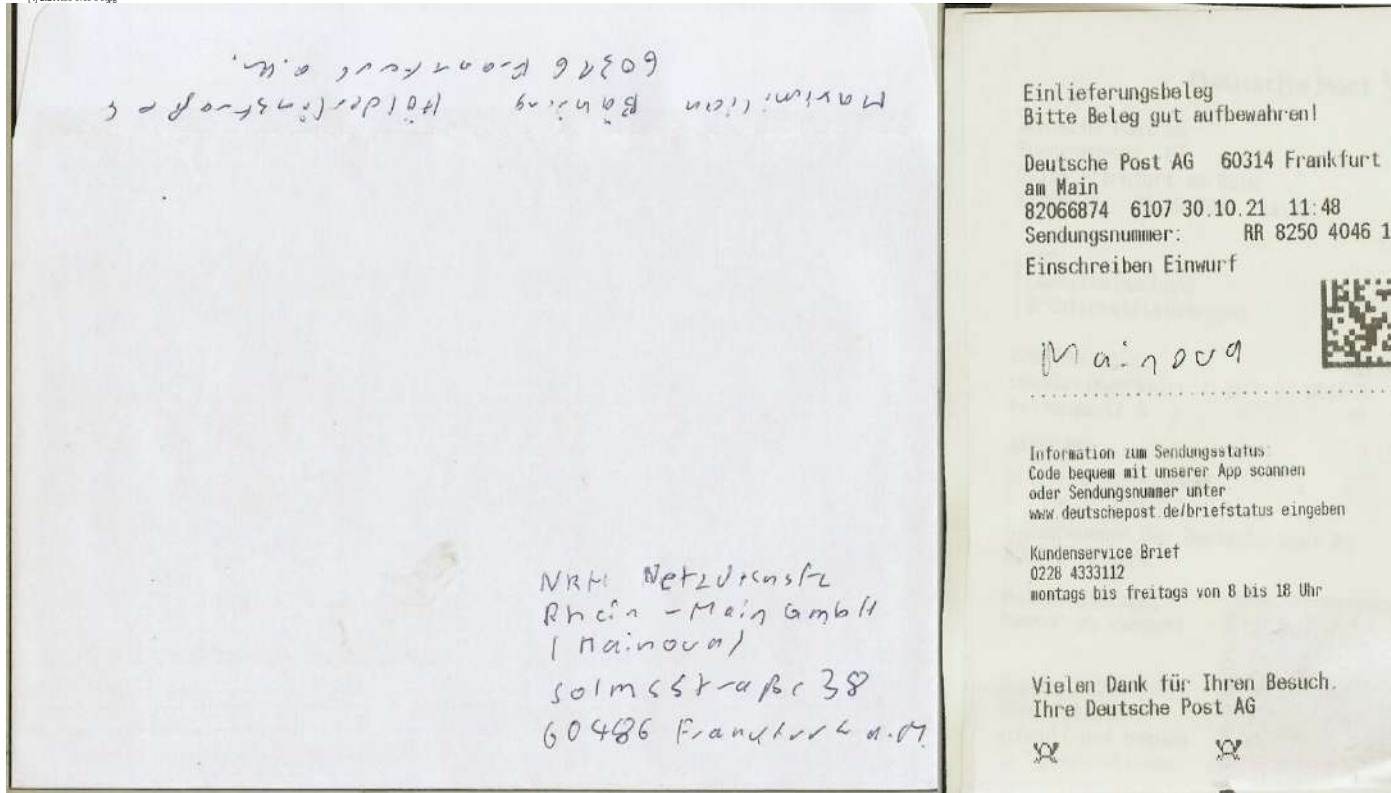 Maximilian Bähring Hölderlinstraße 4
60316 Frankfurt a.M.
NRM Netzdienste
Rhein-Main GmbH
(Mainova)
Solmsstraße 38
60486 Frankfurt a.M.
Einlieferungsbeleg
Bitte Beleg gut aufbewahren!
Deutsche Post AG 60314 Frankfurt
am Main
82066874 6107 30.10.21 11:48
Sendungsnummer: RR 8250 4046 1
Einschreiben Einwurf
Mainova
Information zum Sendungsstatus:
Code bequem mit unserer App scannen
oder Sendungsnummer unter
www.deutschepost.de/briefstatus eingeben
Kundenservice Brief
0228 4333112
montags bis freitags von 8 bis 18 Uhr
Vielen Dank für Ihren Besuch.
Ihre Deutsche Post AG